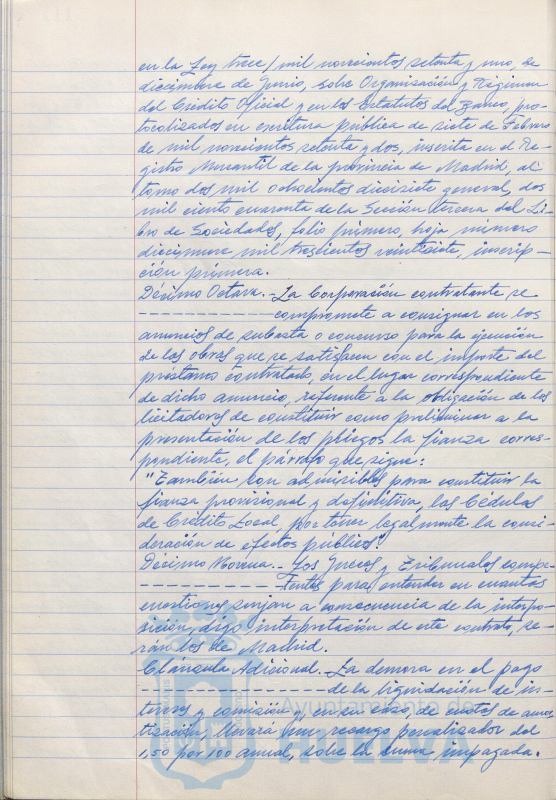 en la Ley trece/mil novecientos setenta y uno, de
diecinueve de Junio, sobre Organización y Régimen
del Crédito Oficial y en los Estatutos del Banco, pro-
tocolizados en escritura pública de siete de Febrero
de mil novecientos setenta y dos, inscrita en el Re-
gistro Mercantil de la provincia de Madrid, al
tomo dos mil ochocientos diecisiete general, dos
mil ciento cuarenta de la Sección tercera del Li-
bro de Sociedades, folio primero, hoja número
diecinueve mil trescientos veintisiete, inscrip-
ción primera.
Décimo Octava. - La Corporación contratante se
compromete a consignar en los
anuncios de subasta o concurso para la ejecución
de las obras que se satisfacen con el importe del
préstamo contratado, en el lugar correspondiente
de dicho anuncio, referente a la obligación de los
licitadores de constituir como preliminar a la
presentación de los pliegos la fianza corres-
pondiente, el párrafo que sigue:
"También son admisibles para constituir la
fianza provisional y definitiva, las Cédulas
de Crédito Local, por tener legalmente la consi-
deración de efectos públicos".
Décimo Novena. - Los Jueces y Tribunales compe-
tentes para entender en cuantas
cuestiones surjan a consecuencia de la interpo-
sición, digo interpretación de este contrato, se-
rán los de Madrid.
Cláusula Adicional. La demora en el pago
de la liquidación de in-
tereses y comisión y, en su caso, de cuotas de amor-
tización, llevará un recargo penalizador del
1,50 por 100 anual, sobre la suma impagada.
Ayuntamiento de